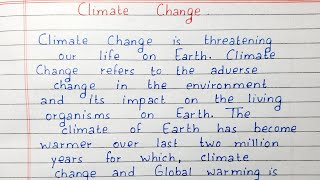 Climate Change.
Climate Change is threatening
our life on Earth. Climate
Change refers to the adverse
change in the environment
and Its impact on the living
organisms on Earth. The
climate of Earth has become
warmer over last two million
years for which, climate
change and Global warming is